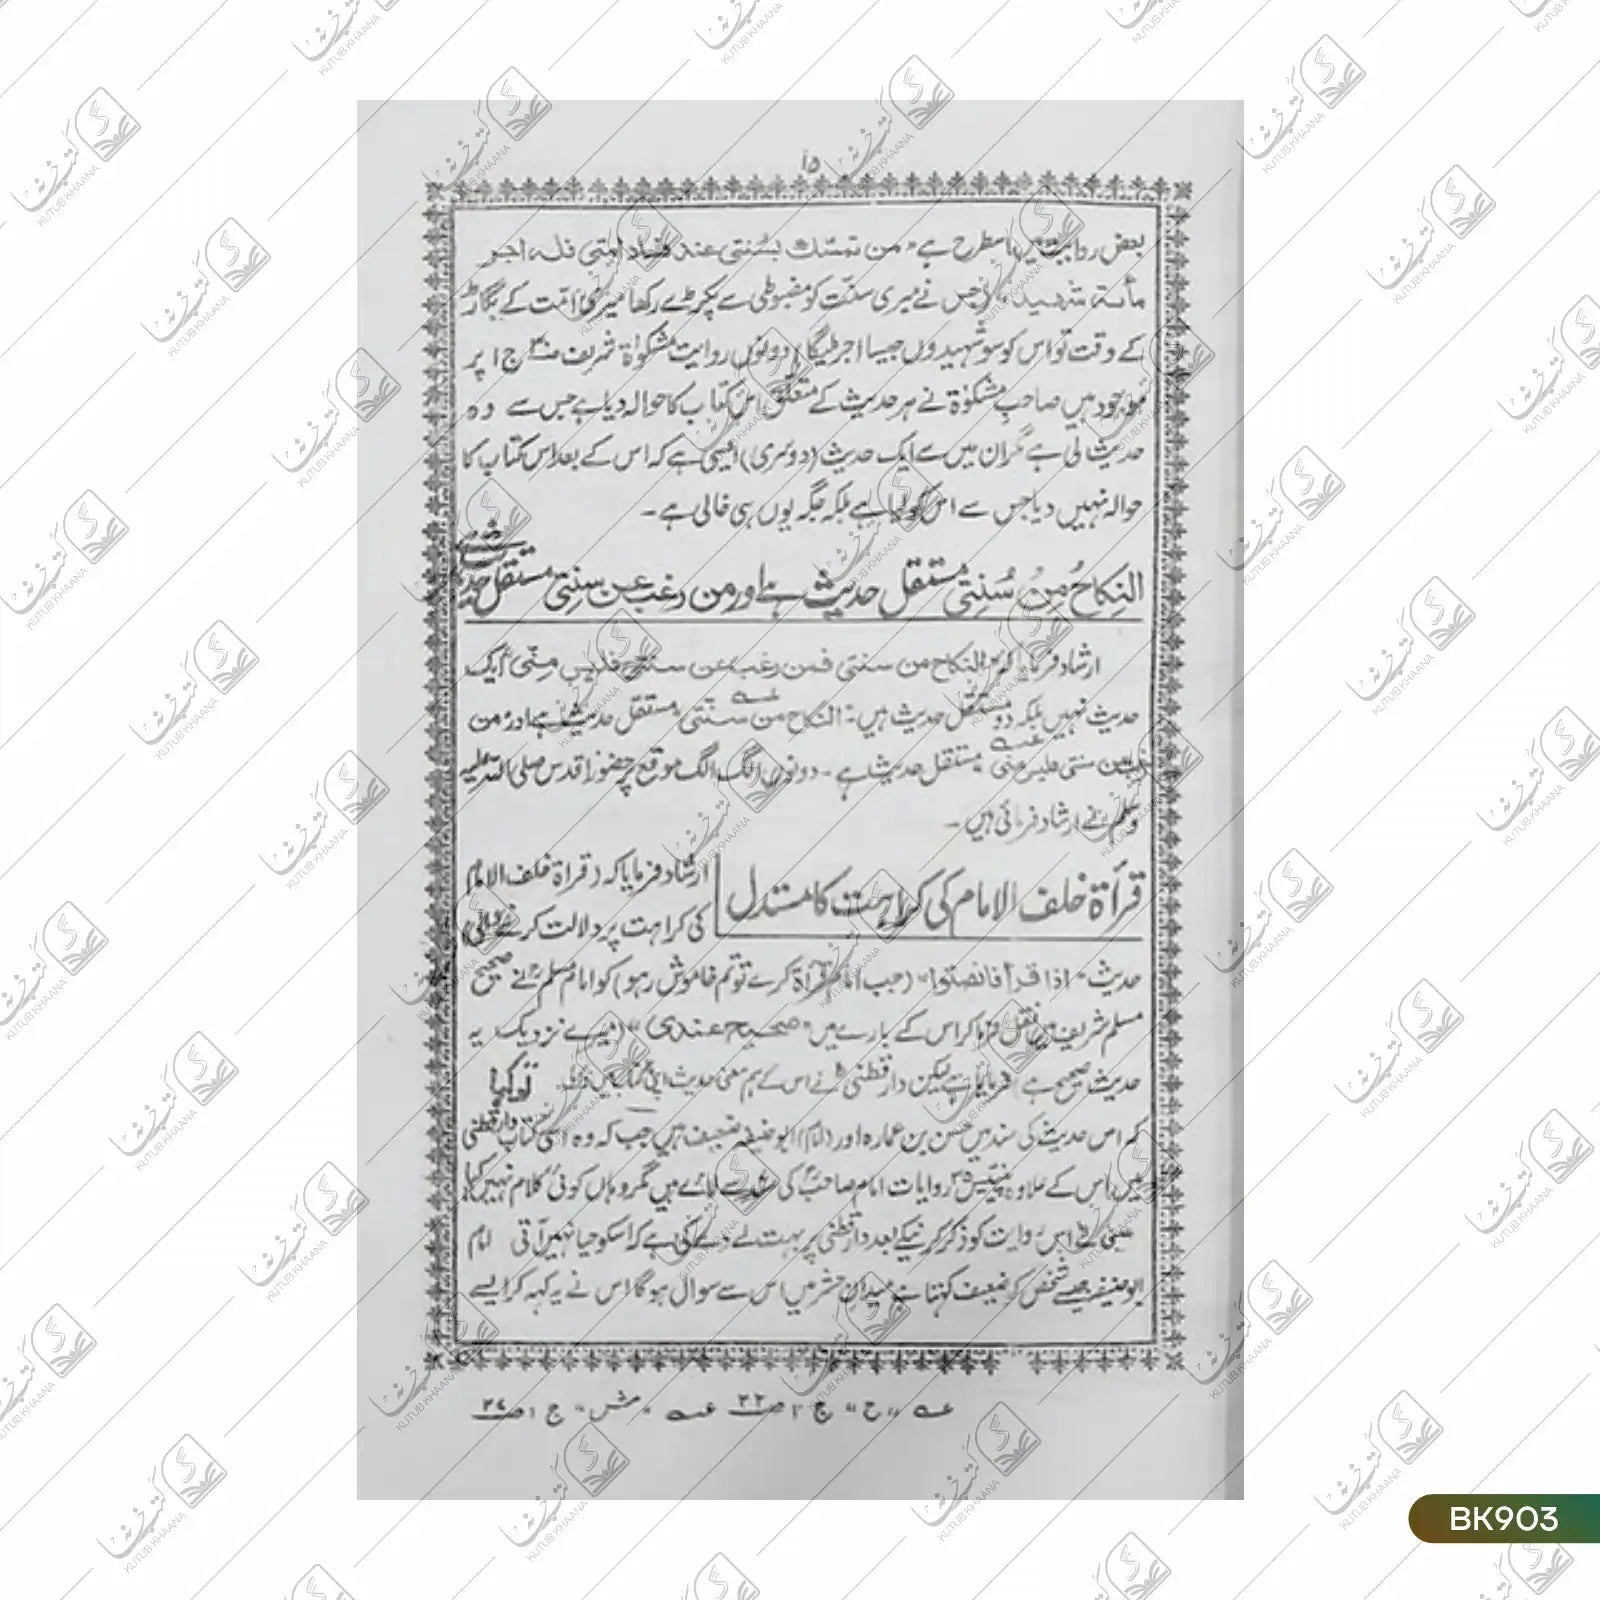 ۱۵
بعض روایت میں اسطرح ہے "من تمسك بسُنتی عند فساد امتی فله اجر
مأئة شهيد" (جس نے میری سنّت کو مضبوطی سے پکڑے رکھا میری امّت کے بگاڑ
کے وقت تو اس کو سو شہیدوں جیسا اجر ملیگا) دونوں روایت مشکوٰۃ شریف ص۳۰ ج۱ پر
موجود ہیں صاحب مشکوٰۃ نے ہر حدیث کے متعلق اس کتاب کا حوالہ دیا ہے جس سے وہ
حدیث لی ہے مگر ان میں سے ایک حدیث (دوسری) ایسی ہے کہ اس کے بعد اس کتاب کا
حوالہ نہیں دیا جس سے اس کو لیا ہے بلکہ جگہ یوں ہی خالی ہے۔
النِکاحُ مِنْ سُنتِی مستقل حدیث ہے اور من رغب عن سنتِی مستقل حدیث ہے
ارشاد فرمایا کہ "النکاح من سنتی فمن رغب عن سنتی فلیس منّی" ایک
حدیث نہیں بلکہ دو مستقل حدیث ہیں: النکاح من سنّتی مستقل حدیث ہے اور من
رغب عن سنتی فلیس منی مستقل حدیث ہے۔ دونوں الگ الگ موقع پر حضور اقدس صلی اللہ علیہ
وسلم نے ارشاد فرمائی ہیں۔
قرأۃ خلف الامام کی کراہت کا مستدل
ارشاد فرمایا کہ (قراۃ خلف الامام
کی کراہت پر دلالت کرنے والی
حدیث "اذا قرأ فانصتوا" (جب امام قرآۃ کرے تو تم خاموش رہو) کو امام مسلمؒ نے صحیح
مسلم شریف میں نقل فرما کر اس کے بارے میں "صحیح عندی" (میرے نزدیک یہ
حدیث صحیح ہے) فرمایا ہے لیکن دار قطنیؒ نے اس کے ہم معنی حدیث اپنی کتاب میں ذکر کی تو کہا
کہ اس حدیث کی سند میں حسن بن عمارہ اور (امام) ابو حنیفہ ضعیف ہیں جب کہ وہ اسی کتاب دار قطنی
میں اس کے علاوہ روایات امام صاحبؒ کی سند سے لائے ہیں مگر وہاں کوئی کلام نہیں کیا
عینی نے اس روایت کو ذکر کرنیکے بعد دار قطنی پر بہت لے دے کی ہے کہ اسکو حیا نہیں آتی امام
ابو حنیفہ جیسے شخص کو ضعیف کہتا ہے میدان حشر میں اس سے سوال ہوگا اس نے یہ کہہ کر ایسے
عہ "ح" ج ص۲۲ عہ "مش" ج۱ ص۲۷
BK903
کتب خانہ
KUTUB KHAANA